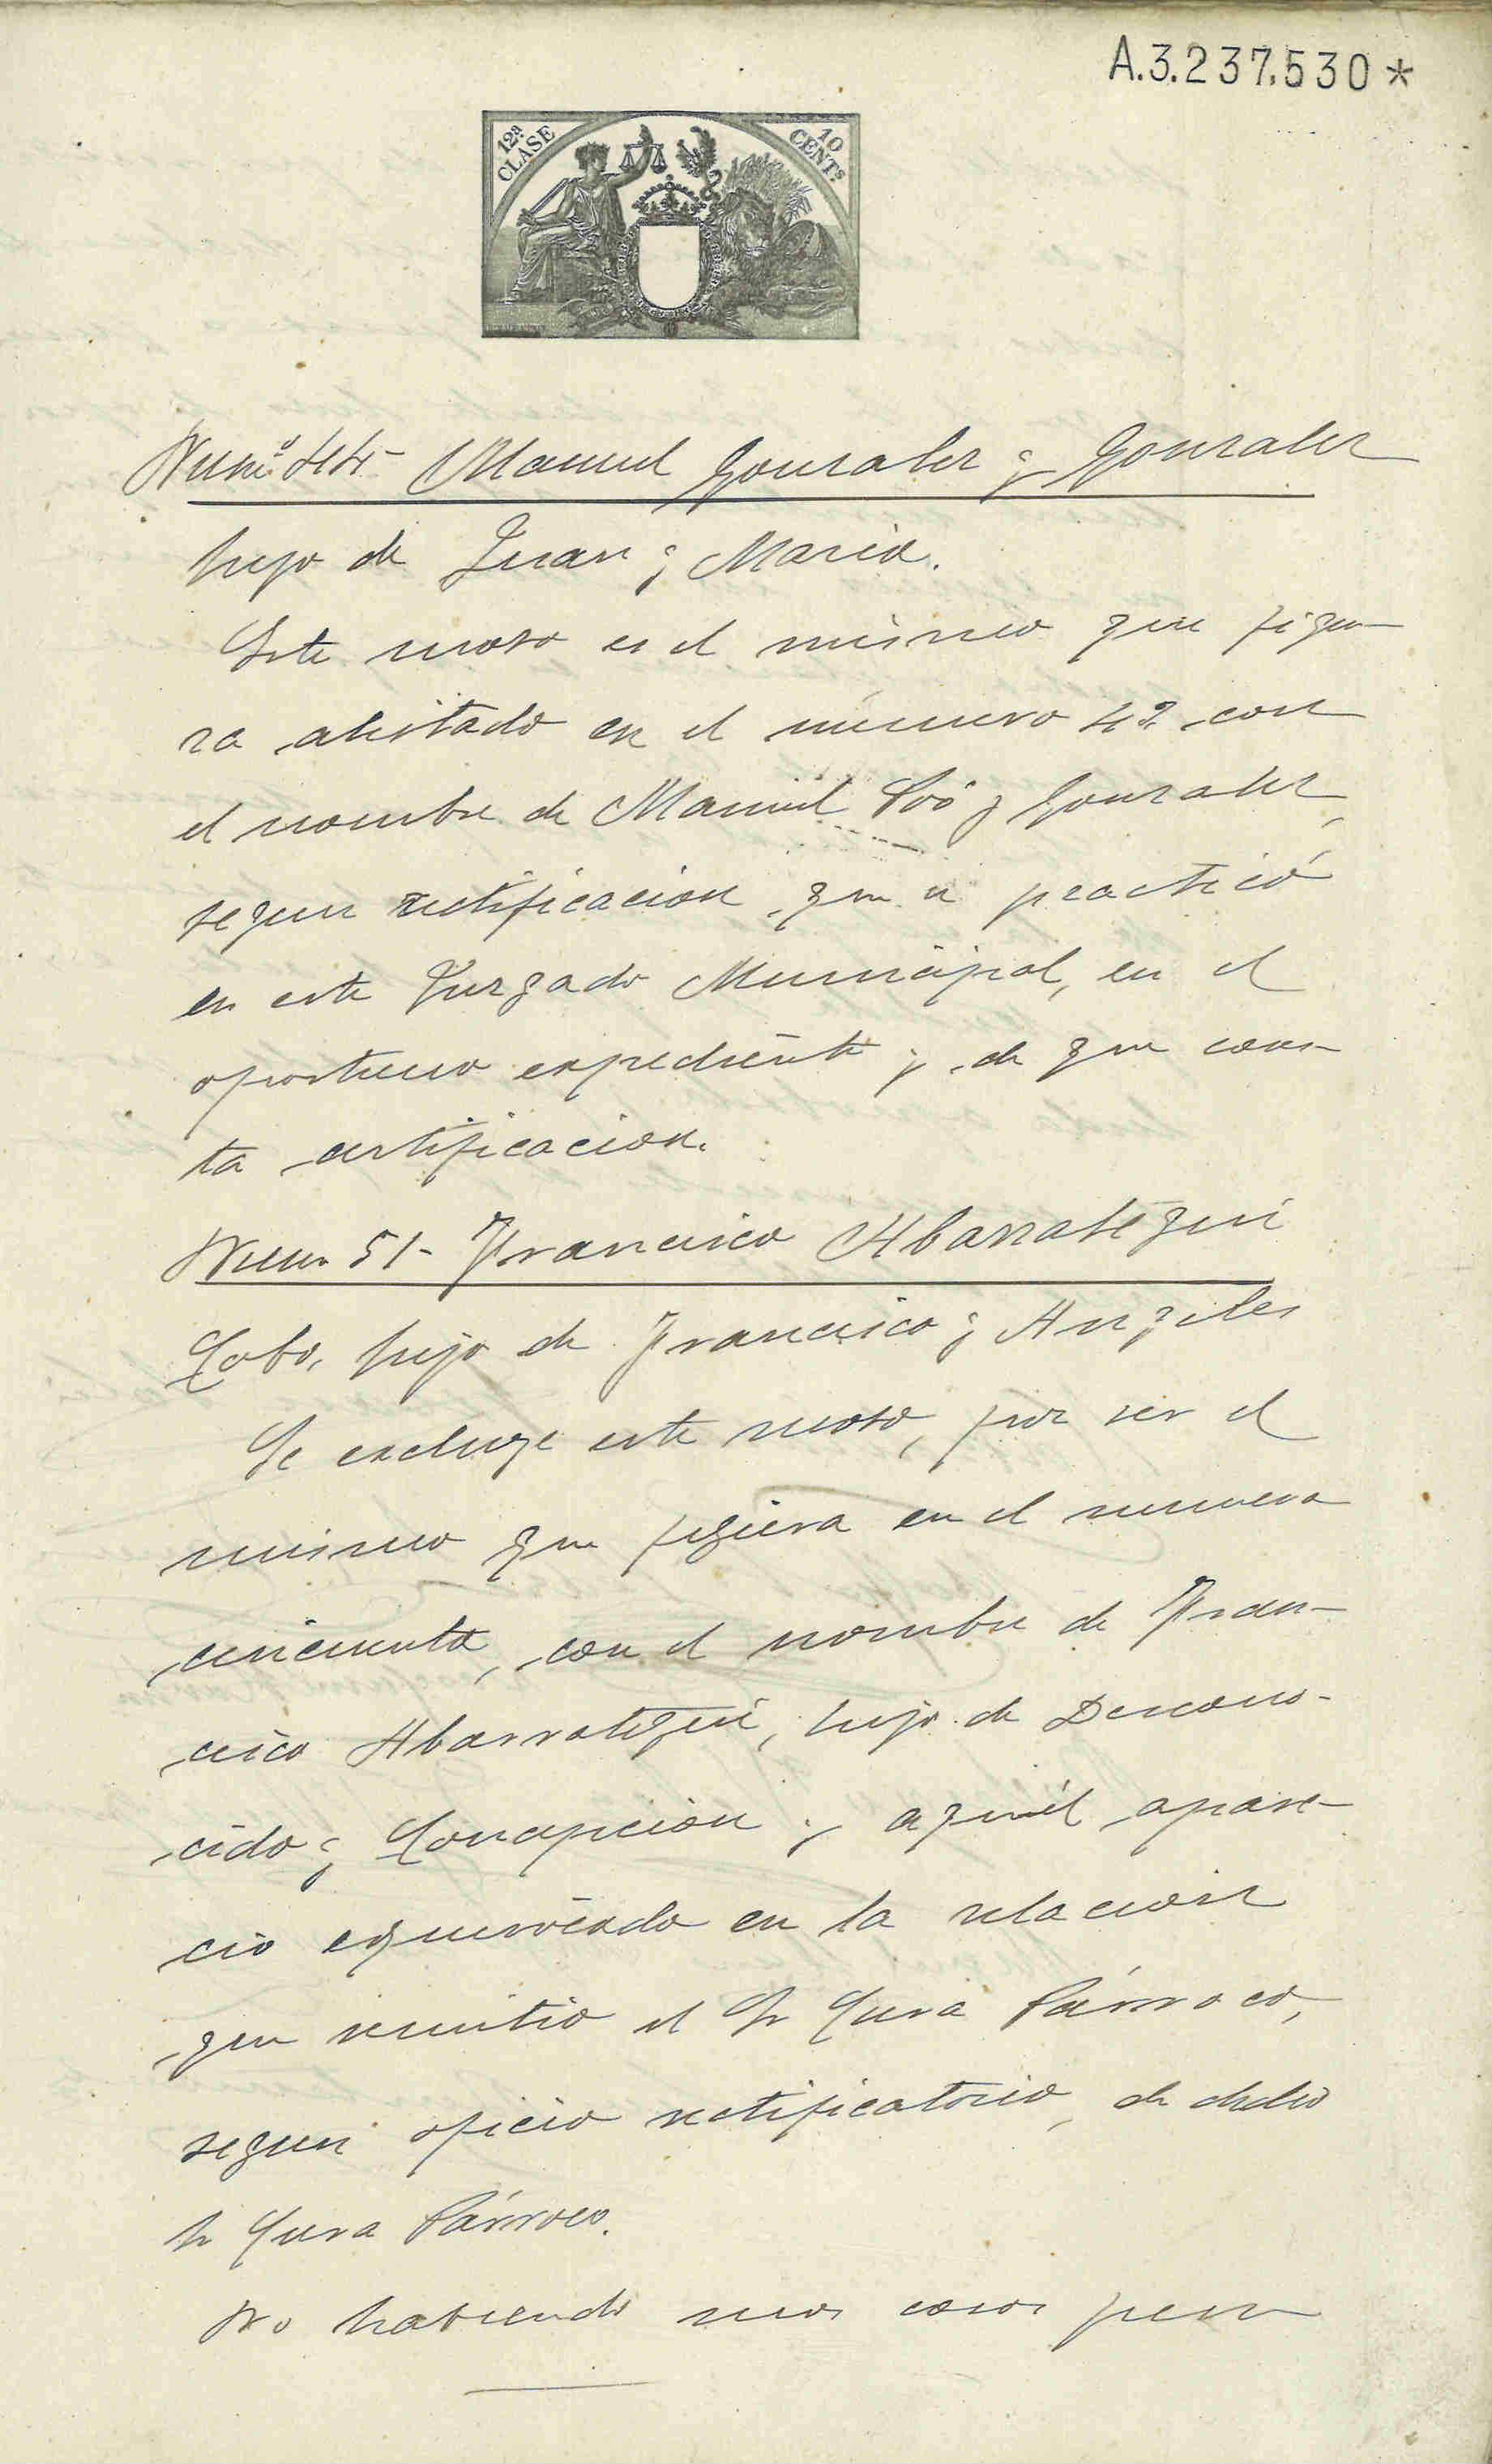 A.3.237.530*
12ª CLASE
10 CENTs
Numº 44- Manuel Gonzalez y Gonzalez
hijo de Juan y Maria.
Este mozo es el mismo que figu-
ra alistado en el número 42 con
el nombre de Manuel Poó y Gonzalez,
segun rectificacion que se practicó
en este Juzgado Municipal, en el
oportuno expediente y de que cons-
ta certificacion.
Num 51- Francisco Abarrategui
Cobo, hijo de Francisco y Angeles
Se excluye este mozo, por ser el
mismo que figura en el numero
cincuenta, con el nombre de Fran-
cisco Abarrategui, hijo de Descono-
cido y Concepcion y aquél apare-
cio equivocado en la relacion
que remitio el Sr Cura Párroco,
segun oficio rectificatorio, de dicho
Sr Cura Párroco.
No habiendo mas casos pen